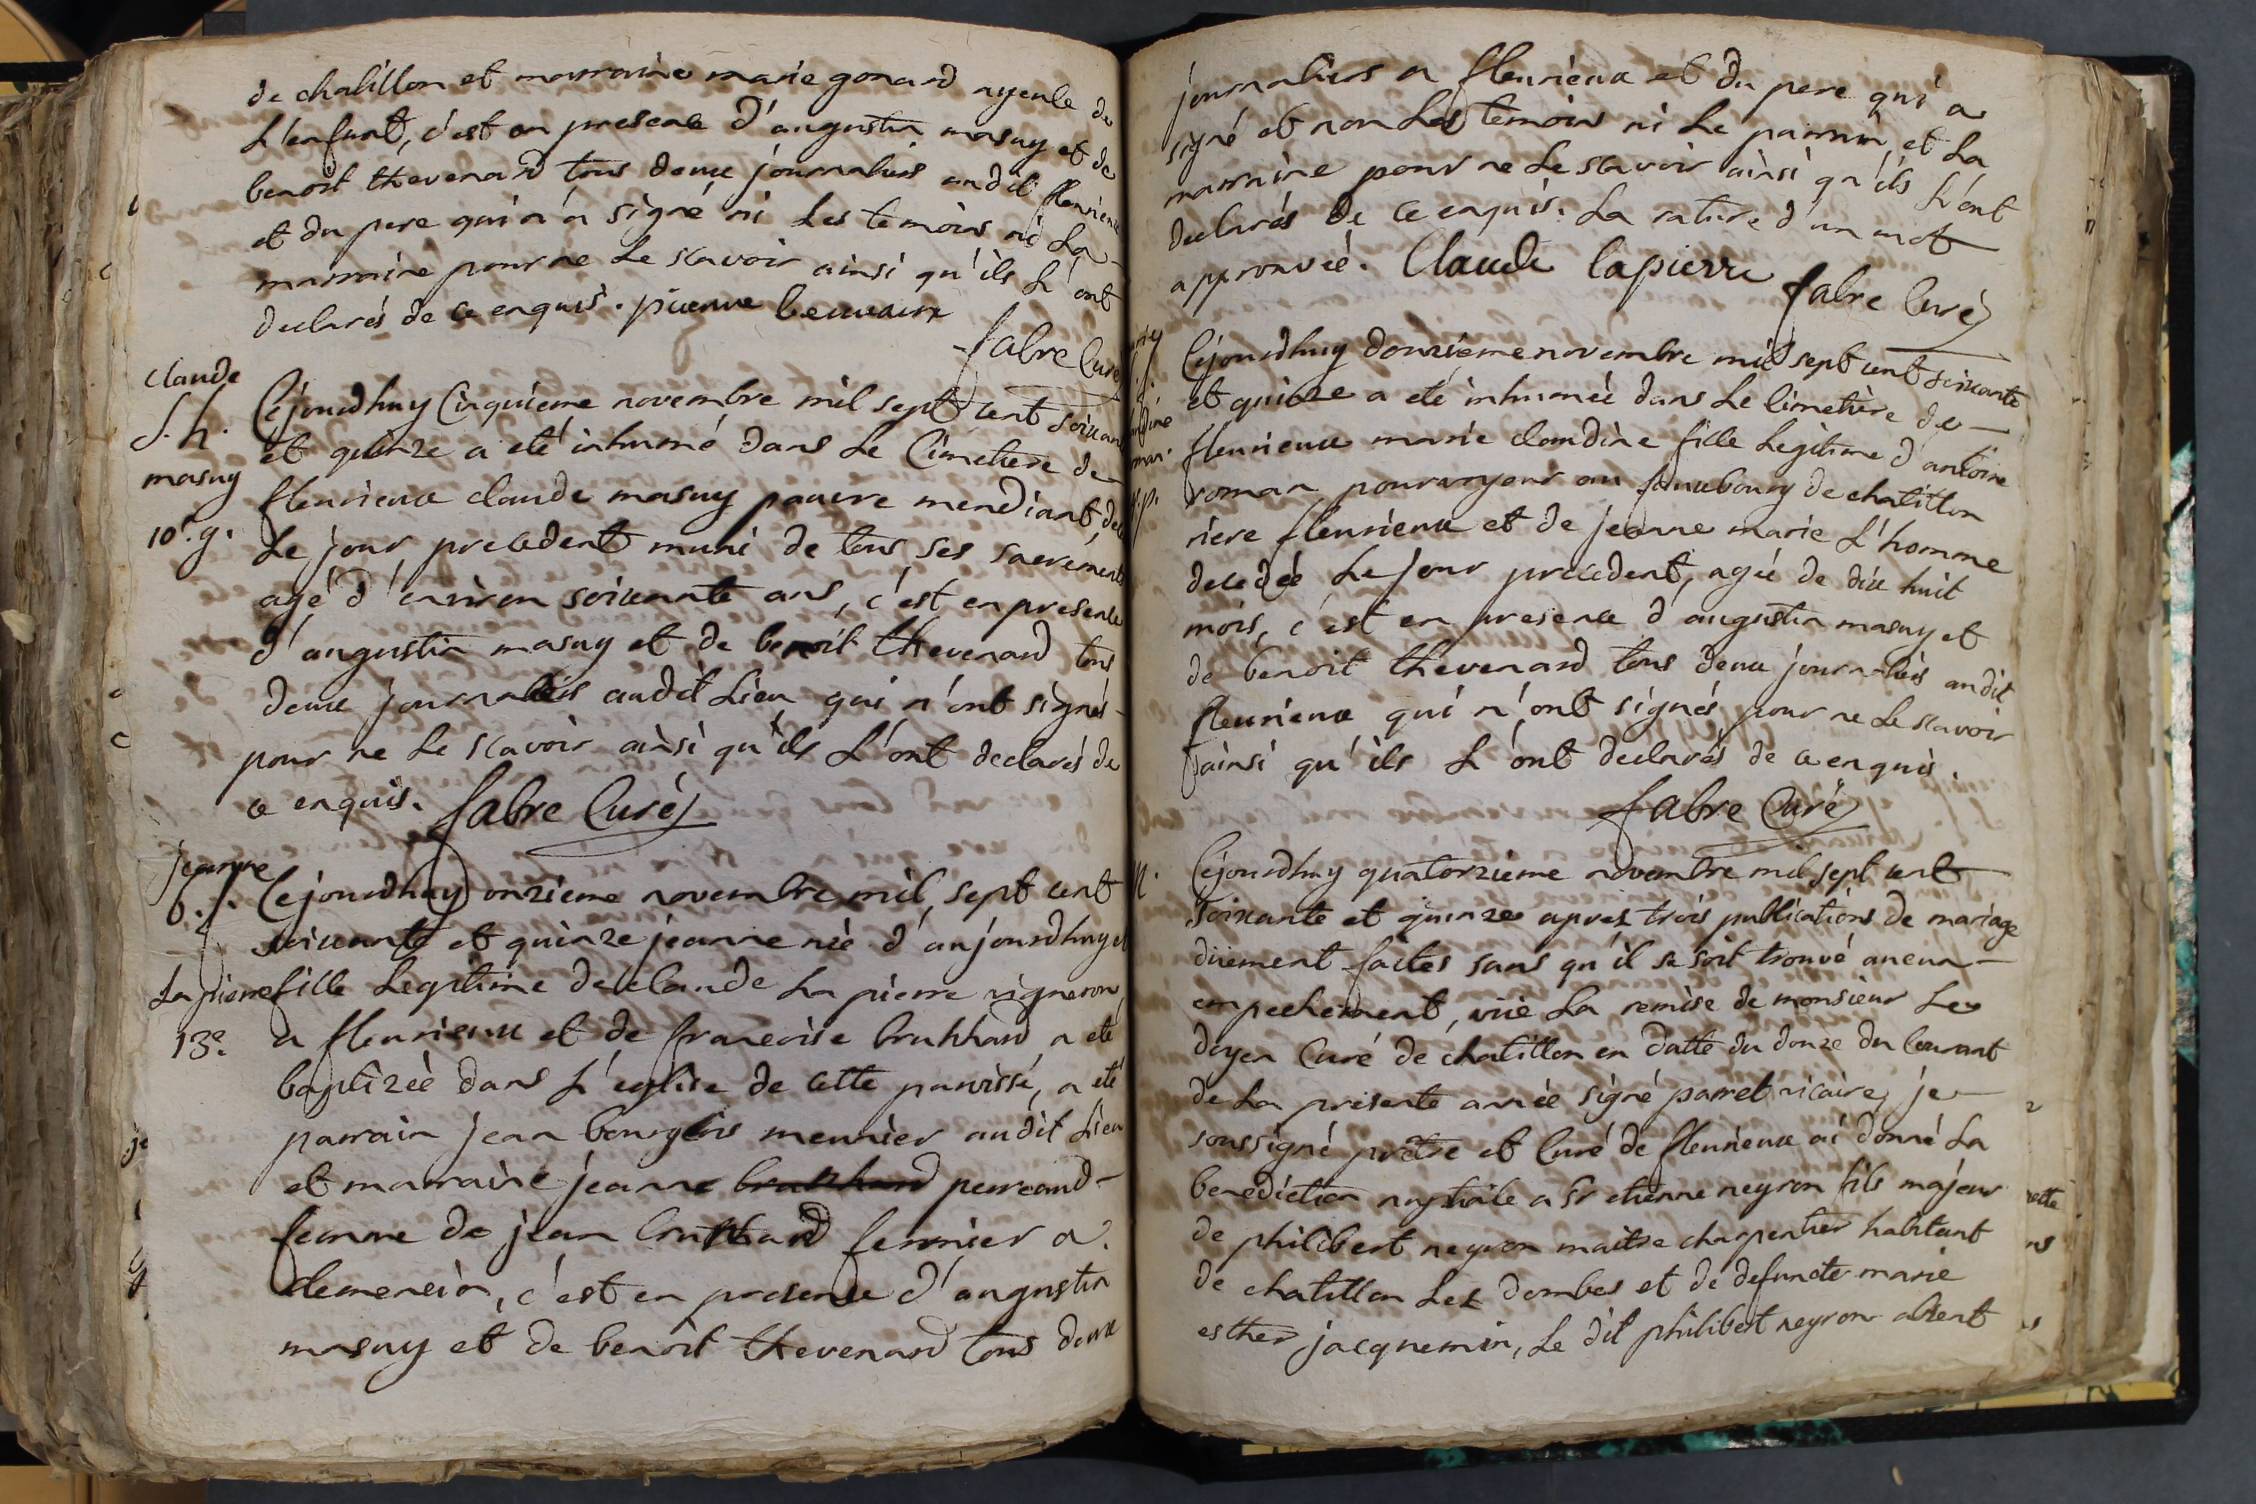 de chatillon et marraine marie gonard ayeule de
L'enfant, c'est en presence d'augustin masuy et de
benoit thevenard tous deux journaliers audit fleurieux
et du pere qui n'a signé ni Les temoins ni La
marraine pour ne Le scavoir ainsi qu'ils L'ont
declarés de ce enquis.
fabre Curé
Claude
S. h.
masuy
10e. g.
Cejourdhuy Cinquieme novembre mil sept cent soixante
et quinze a eté inhumé dans Le Cimetiere de
fleurieux claude masuy pauvre mendiant
Le jour precedent muni de tous ses sacrements
agé d'environ soixante ans, c'est en presence
d'augustin masuy et de benoit thevenard tous
deux journaliers audit Lieu qui n'ont signés
pour ne Le scavoir ainsi qu'ils L'ont declarés de
ce enquis. fabre Curé
jeanne
b. f.
La pierre
13e.
Cejourdhuy onzieme novembre mil sept cent
soixante et quinze jeanne née d'aujourdhuy et
fille Legitime de claude La pierre vigneron
a fleurieux et de francoise bruhhard a eté
baptizée dans L'eglise de cette parroisse, a eté
parrain jean bourglois meunier audit Lieu
et marraine jeanne bruhhard perreaud
femme de jean bruhhard fermier a
clemencia, c'est en presence d'augustin
masuy et de benoit thevenard tous deux
journaliers a fleurieux et du pere qui a
signé et non Les temoins ni Le parrain, et La
marraine pour ne Le scavoir ainsi qu'ils L'ont
declarés de ce enquis. La rature d'un mot
approuvée. Claude lapierre fabre Curé
Cejourdhuy douzieme novembre mil sept cent soixante
et quinze a eté inhumée dans Le Cimetiere de
fleurieux marie claudine fille Legitime d'antoine
roman pourvoyeur au fauxbourg de chatillon
riere fleurieux et de jeanne marie L'homme
decedée Le jour precedent, agée de dix huit
mois, c'est en presence d'augustin masuy et
de benoit thevenard tous deux journaliers audit
fleurieux qui n'ont signés pour ne Le scavoir
ainsi qu'ils L'ont declarés de ce enquis.
fabre Curé
Cejourdhuy quatorzieme novembre mil sept cent
soixante et quinze aprez trois publications de mariage
düement faites sans qu'il se soit trouvé aucun
empechement, vüe La remise de monsieur Le
doyen Curé de chatillon en datte du douze du Courant
de La presente année signé parret vicaire, je
soussigné prêtre et Curé de fleurieux ai donné La
benediction nuptiale a Sr etienne neyron fils majeur
de philibert neyron maitre charpentier habitant
de chatillon Lez dombes et de defuncte marie
esther jacquemin, Le dit philibert neyron absent